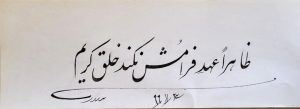 ظاهراً عهد فرامش نکند خلق کریم